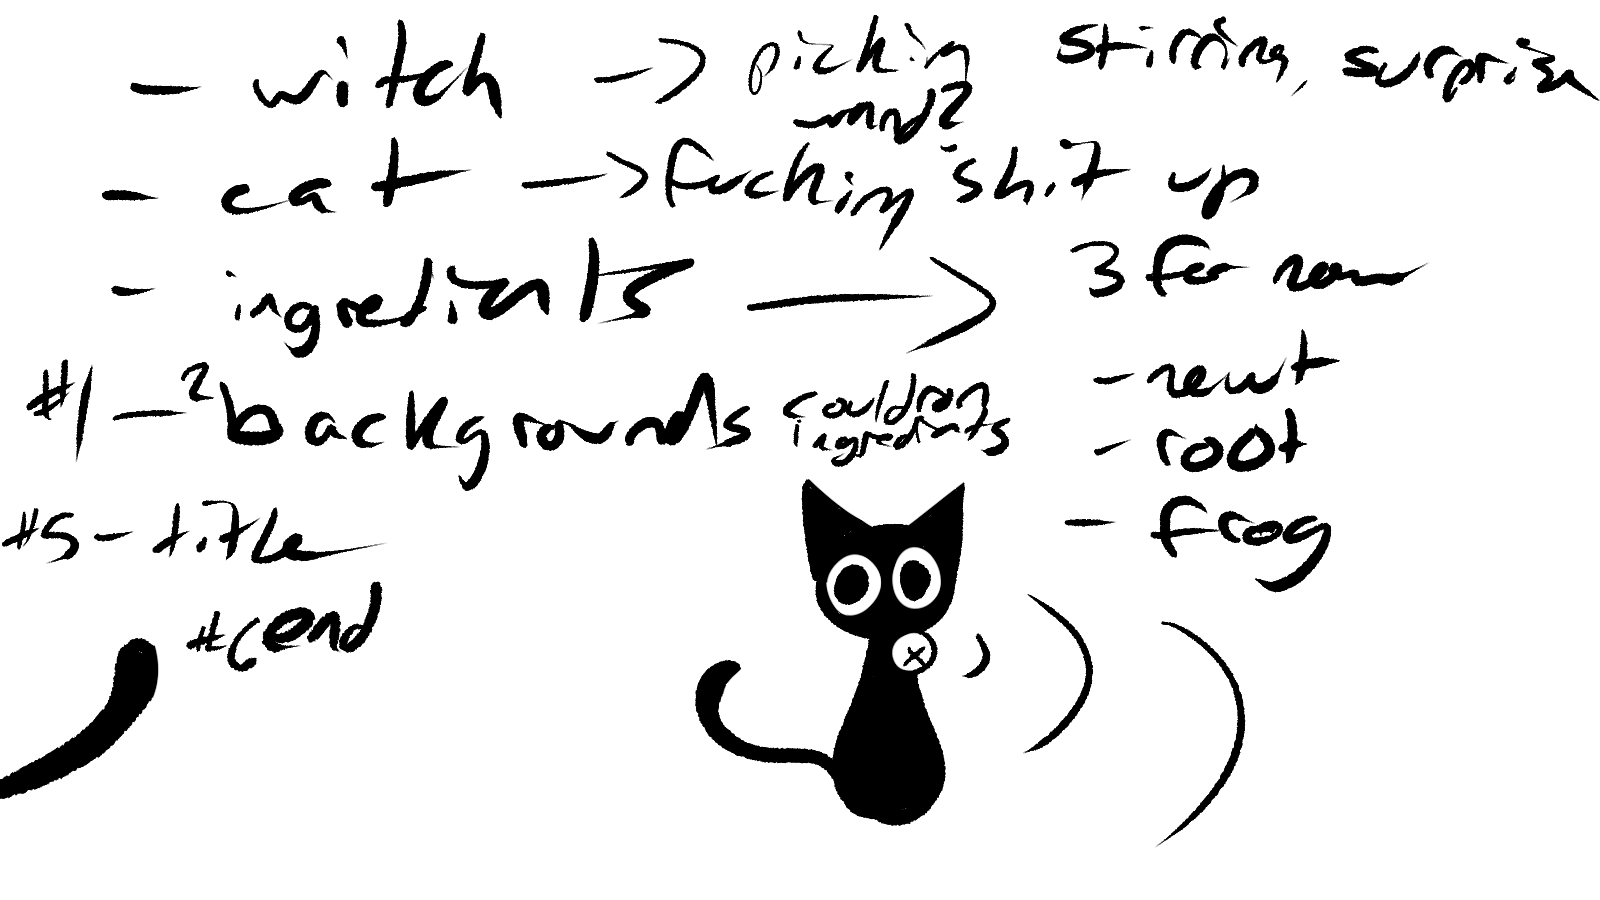 - witch → picking stirring, surprise
wand?
- cat → fucking shit up
- ingredients → 3 for now
- newt
#1 - 2 backgrounds couldron
ingredients
- root
#5 - title
- frog
#6 end